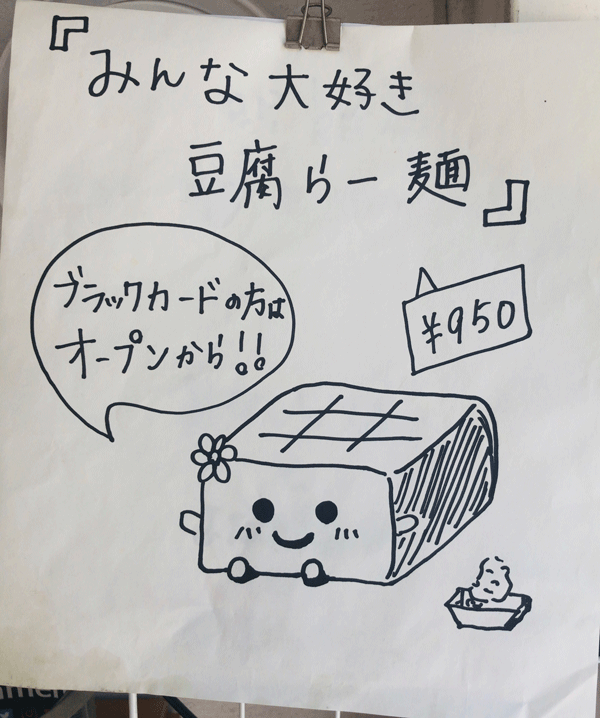 『みんな大好き
豆腐らー麺』
ブラックカードの方は
オープンから!!
¥950